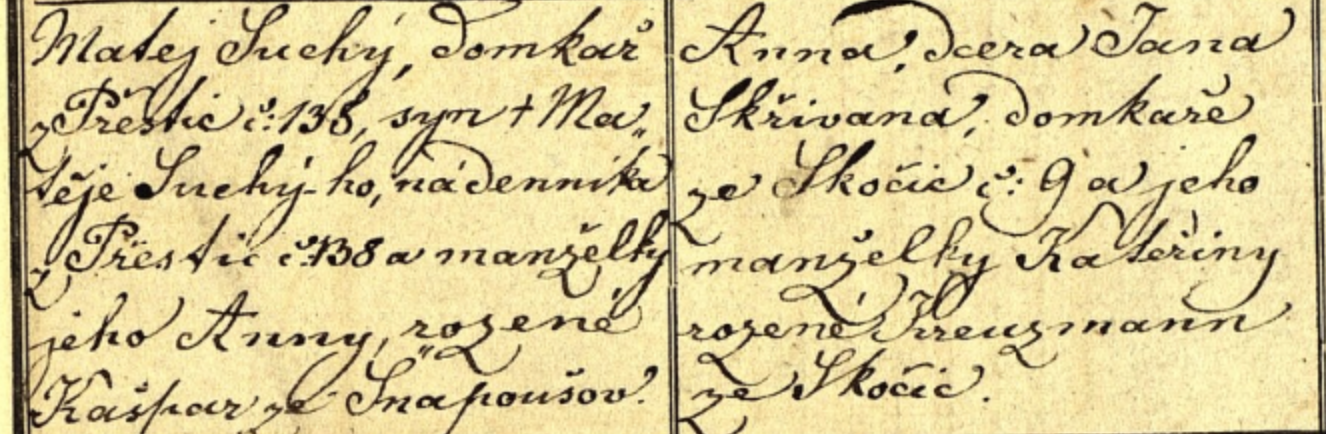 Matej Suchý, domkař
z Přestic č: 138, syn † Ma„
těje Suchý-ho, nádenníka
z Přestic č: 138 a manželky
jeho Anny, rozené
Kašpar ze Snapoušov.
Anna, dcera Jana
Skřivana, domkaře
ze Skočic č: 9 a jeho
manželky Kateřiny
rozené Kreuzmann
ze Skočic.